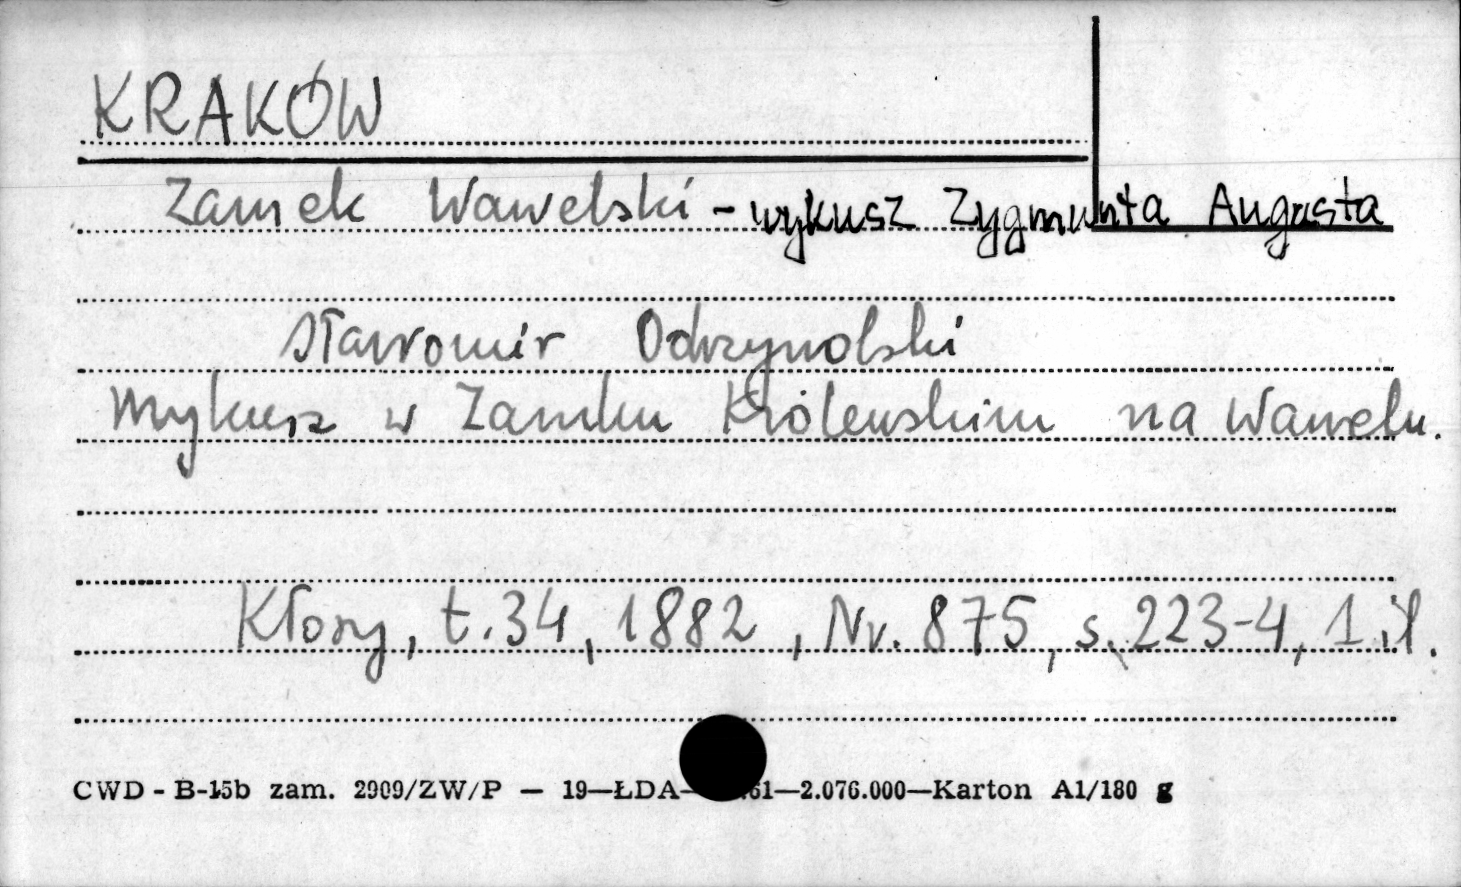 KRAKÓW
Zamek Wawelski - wykusz Zygmunta Augusta
Sławomir Odrzywolski
Wykusz w Zamku Królewskim na Wawelu.
Kłosy, t. 34, 1882, Nr. 875, s. 223-4, 1 il.
CWD - B-15b zam. 2909/ZW/P — 19—ŁDA— 61—2.076.000—Karton A1/180 g